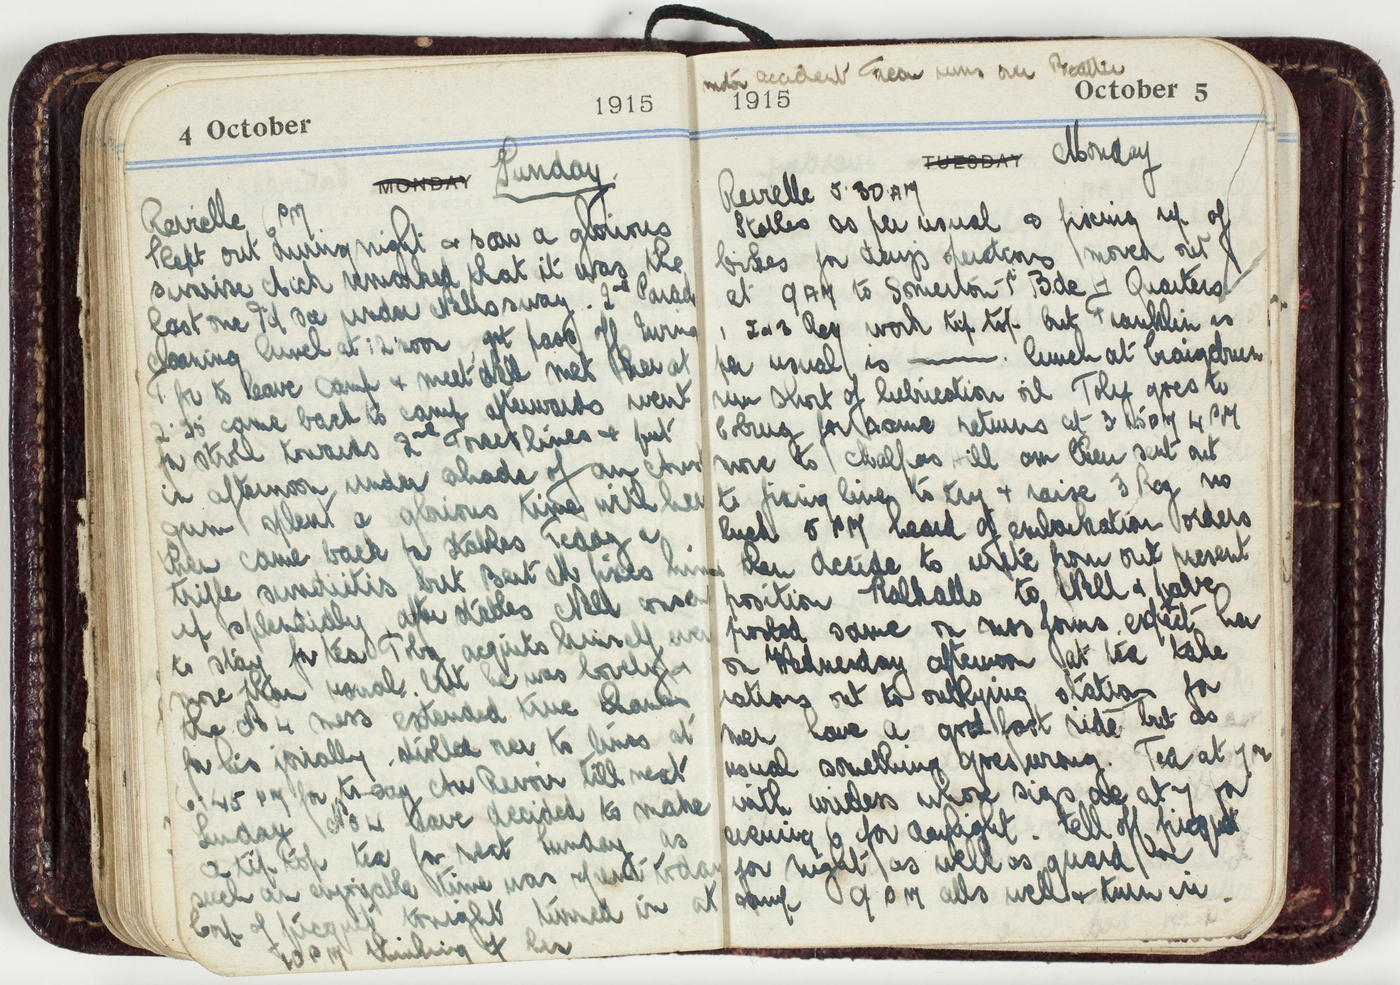 4 October 1915
MONDAY Sunday.
Revielle 6 PM
slept out during night & saw a glorious
sunrise which remarked that it was the
last one I'd see under Nells sway. 2nd Parade
clearing level at 12 noon, get pass off
for to leave camp & meet Nell met her at
2.30 came back to camp afterwards went
for stroll towards 2nd lines & put
in afternoon under shade of an
gum spent a glorious time with her
then came back for stables Teddy a
trifle but Bert Mc fixes him
up splendidly, after stables Nell
to stay for tea Toby acquits himself even
more than usual. but he was lovely &
the No 4 mess extended true thanks
for his jovially, strolled over to lines at
6.45 PM for to say Au Revoir till next
Sunday No 4 have decided to make
a tip top tea for next Sunday as
such an enjoyable time was spent today
Corp of picquet tonight turned in at
10 PM thinking of her
motor accident runs over
1915 October 5
TUESDAY Monday
Revielle 5.30 AM
Stables as per usual & fixing up of
bikes for days operations moved out
at 9 AM to Somerton 1st Bde Hd Quarters
1, 2 & 3 Reg work tip top but Franklin as
per usual is ———. lunch at Craigieburn
run short of lubrication oil Toby goes to
Coburg for some returns at 3.15 PM 4 PM
move to hill am then sent out
to firing lines to try & raise 3 Reg no
luck 5 PM heard of embarkation orders
then decide to write from out present
position Kalkallo to Nell & have
posted same on mess forms expect her
on Wednesday afternoon at tea take
rations out to outlying station for
men have a good fast ride but as
usual something goes wrong. Tea at 7 PM
with wireless whose sigs are at 7 PM
evening for daylight. tell off picquet
for night as well as guard for
camp 9 PM alls well & turn in.